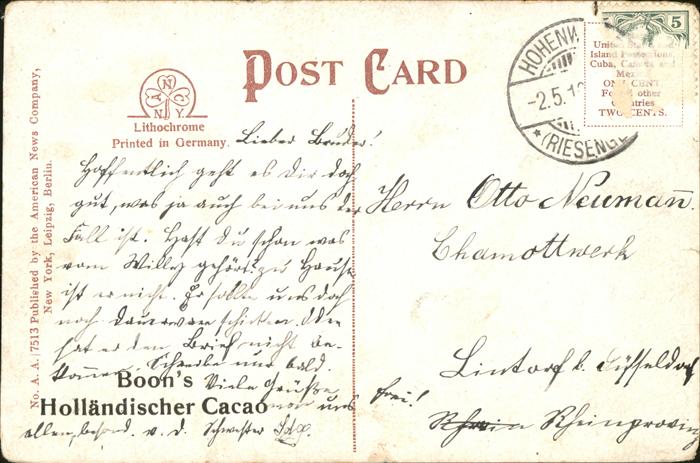 POST CARD
5
HOHENW
-2.5.1
* (RIESENGE
United States and
Island Possessions,
Cuba, Canada and
Mexico
ONE CENT.
For all other
Countries
TWO CENTS.
ANCNY
Lithochrome
Printed in Germany.
No. A. A. /7513 Published by the American News Company,
New York, Leipzig, Berlin.
Lieber Bruder!
Hoffentlich geht es Dir doch
gut, was ja auch bei uns der
Fall ist. Hast Du schon was
vom Willy gehört, zu Hause
ist er nicht. Er sollte uns doch
noch Dauerware schicken. Oder
hat er den Brief nicht be-
kommen. Schreibe nur bald.
Viele Grüße
von uns
allen, besond. v. d. Schwester
Boon's
Holländischer Cacao
Herrn Otto Neumann.
Chamottwerk
Lintorf b. Düsseldorf
frei!
Rhein Rheinprovinz